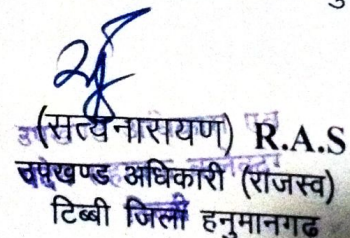 (सत्यनारायण) R.A.S
उपखण्ड अधिकारी (राजस्व)
टिब्बी जिला हनुमानगढ